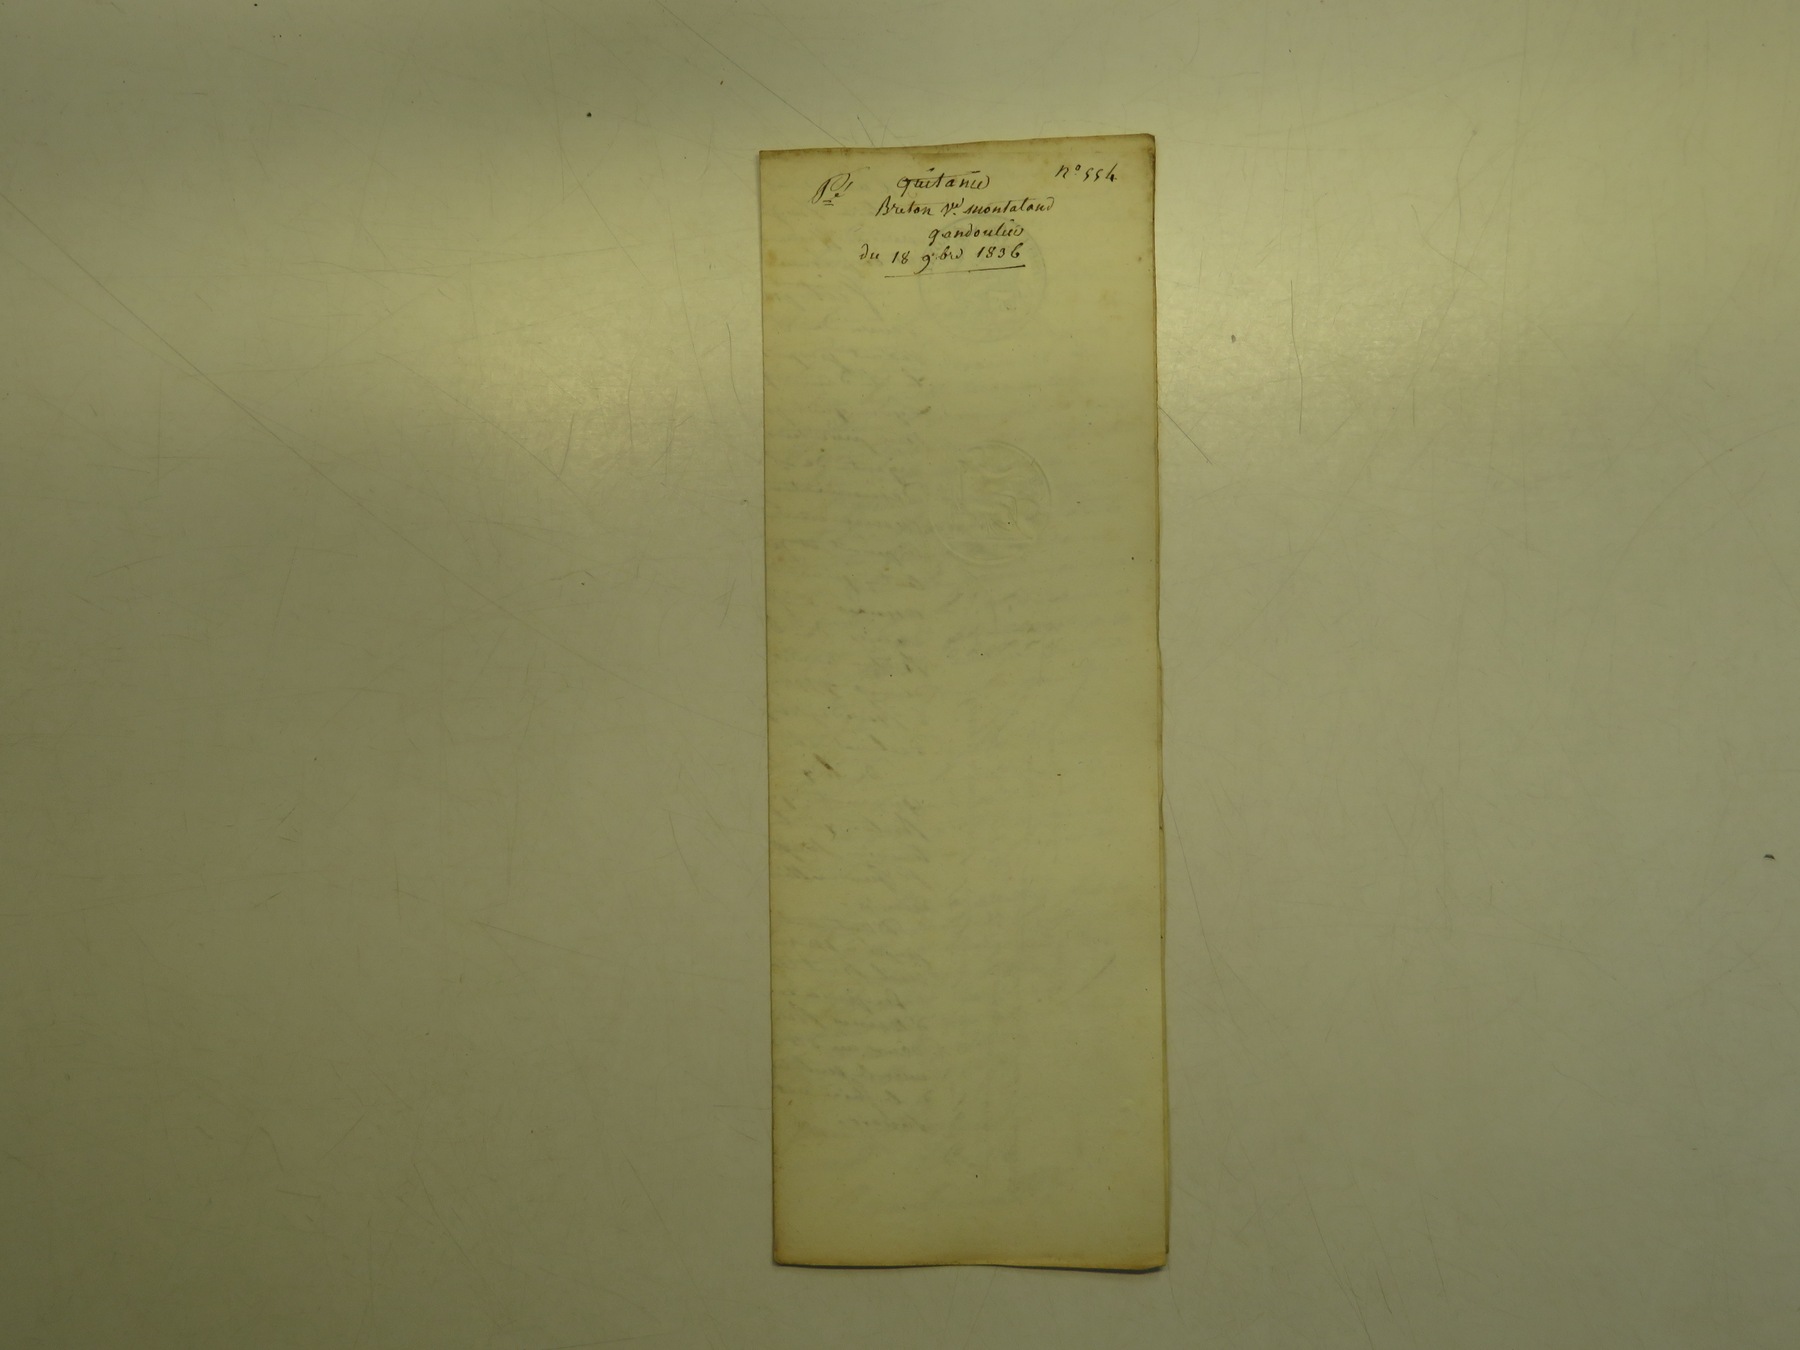 quitance n° 554
Breton Ve montaland
gandoulin
du 18 9.bre 1836